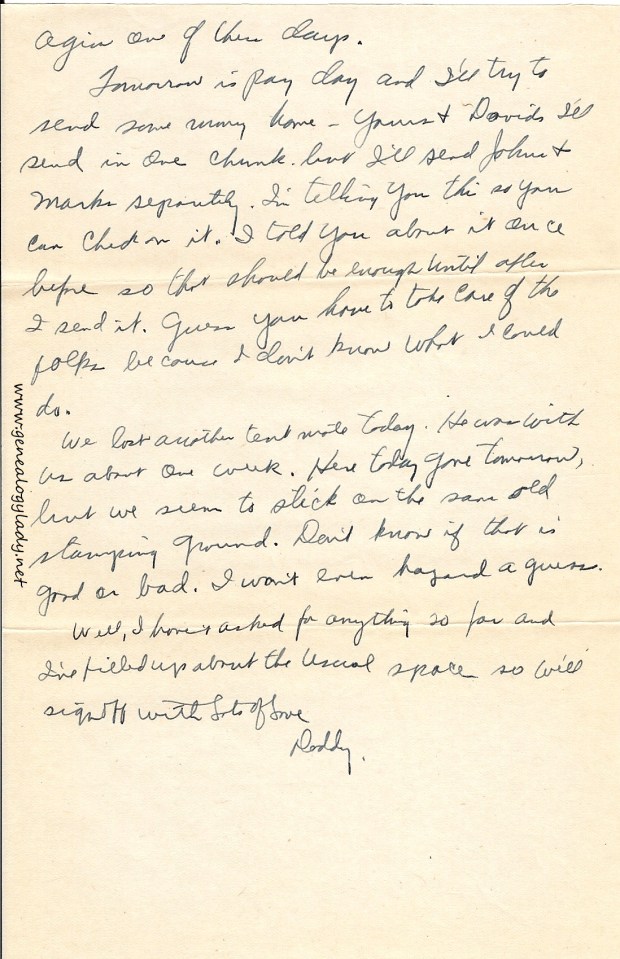 agin one of these days.
Tomorrow is pay day and I'll try to
send some money home - Yours & Davids I'll
send in one chunk. but I'll send Johns &
Marks separately. I'm telling you this so you
can check on it. I told you about it once
before so that should be enough until after
I send it. Guess you have to take care of the
folks because I don't know what I could
do.
We lost another tent mate today. He was with
us about one week. Here today gone tomorrow,
but we seem to stick on the same old
stamping ground. Don't know if that is
good or bad. I won't even hazard a guess.
Well, I haven't asked for anything so far and
I've filled up about the usual space so will
sign off with Lots of Love
Daddy.
www.genealogylady.net